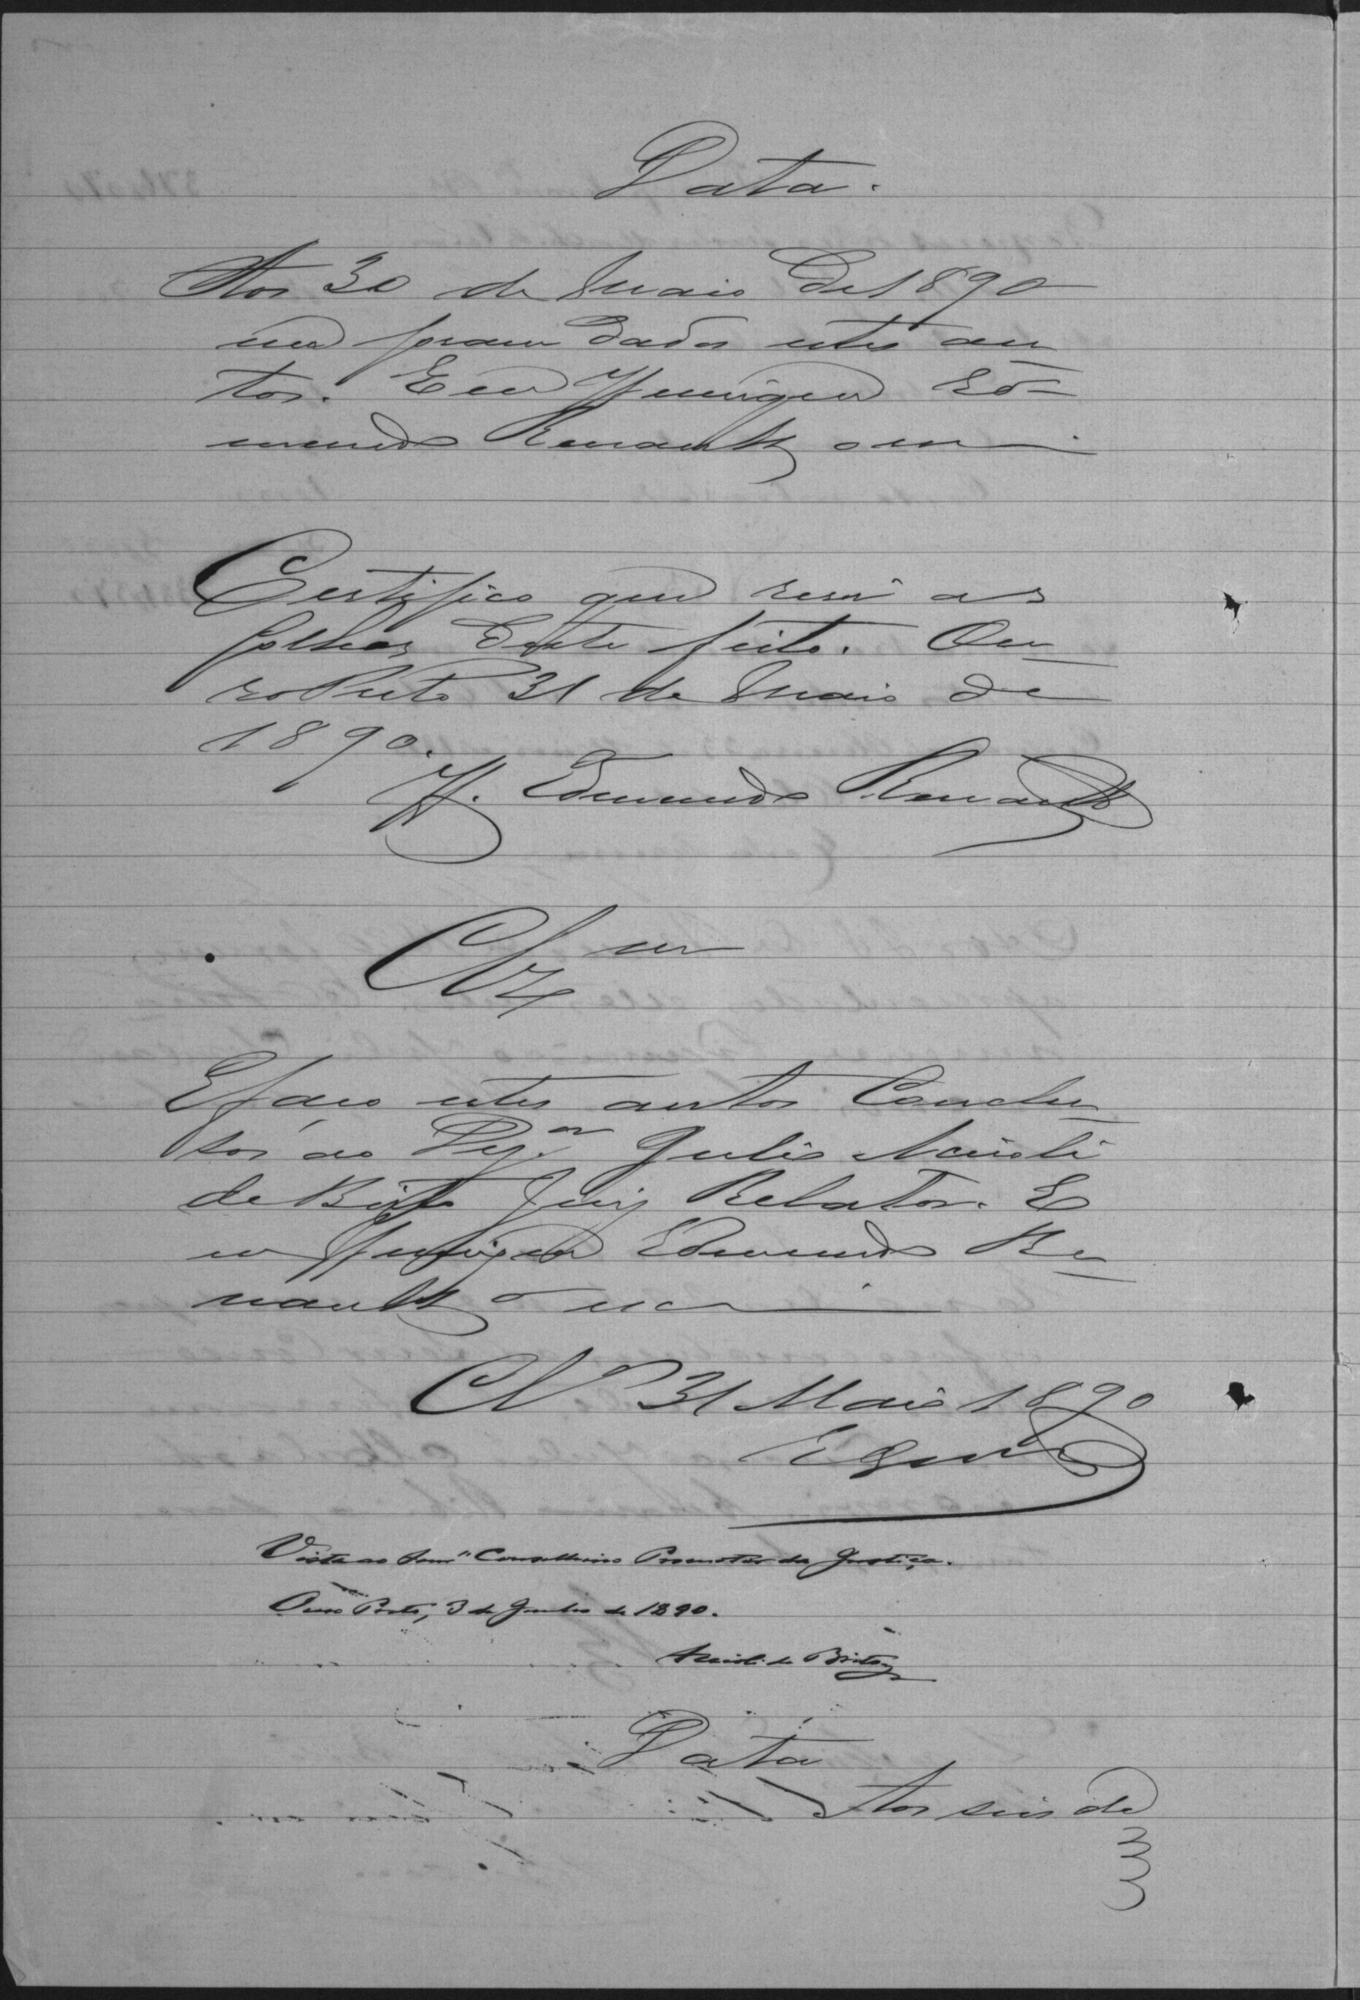 Data.
Aos 30 de Maio de 1890
me foram dados estes au
tos. Eu Henrique Ed-
mundo Renault o escri
Certifico que revi as
folhas deste feito. Ou
ro Preto 31 de Maio de
1890.
H. Edmundo Renault
Clzam
E faço estes autos Conclu
sos ao Dezor Julio Accioli
de Brito Juiz Relator. E
u Henrique Edmundo Re
nault o escri
Clo 31 Maio 1890
Vista ao Exmo Conselheiro Promotor da Justiça.
Ouro Preto, 3 de Junho de 1890.
Accioli de Brito
Data
Aos seis de